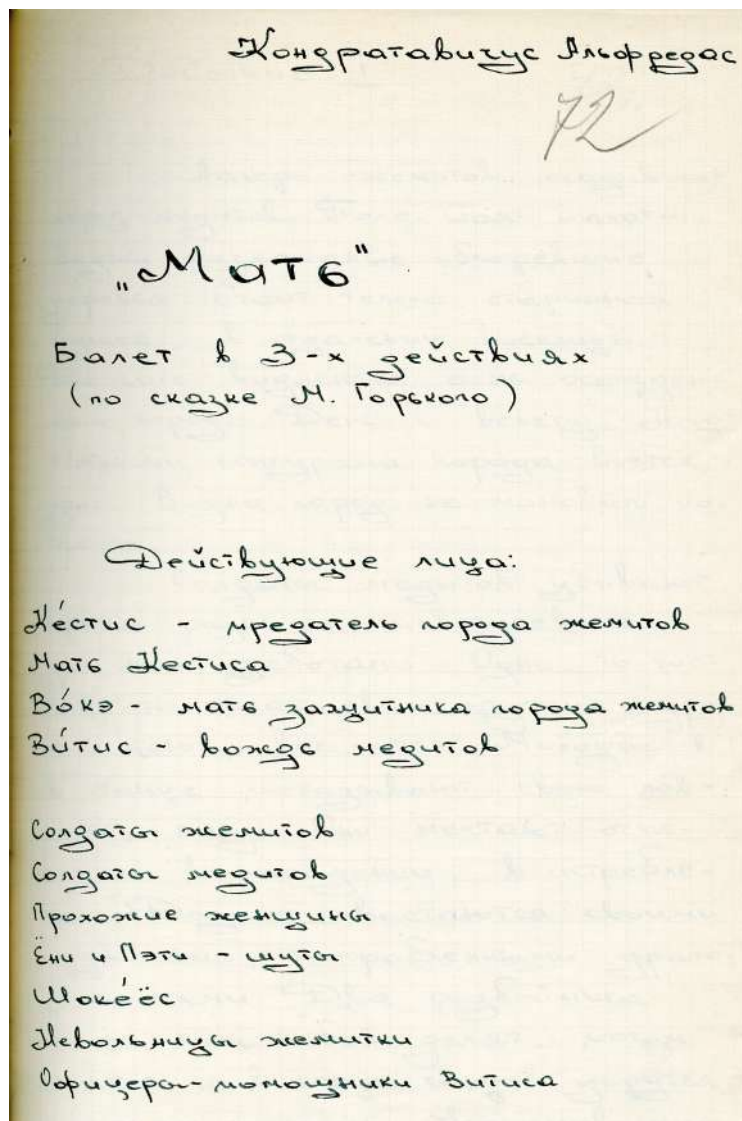 Кондратавичус Альфредас
72
„Мать"
Балет в 3-х действиях
(по сказке М. Горького)
Действующие лица:
Ке́стис - предатель города жемитов
Мать Кестиса
Во́кэ - мать защитника города жемитов
Ви́тис - вождь медитов
Солдаты жемитов
Солдаты медитов
Прохожие женщины
Ёни и Пэти - шуты
Шоке́ёс
Невольницы жемитки
Офицеры-помощники Витиса